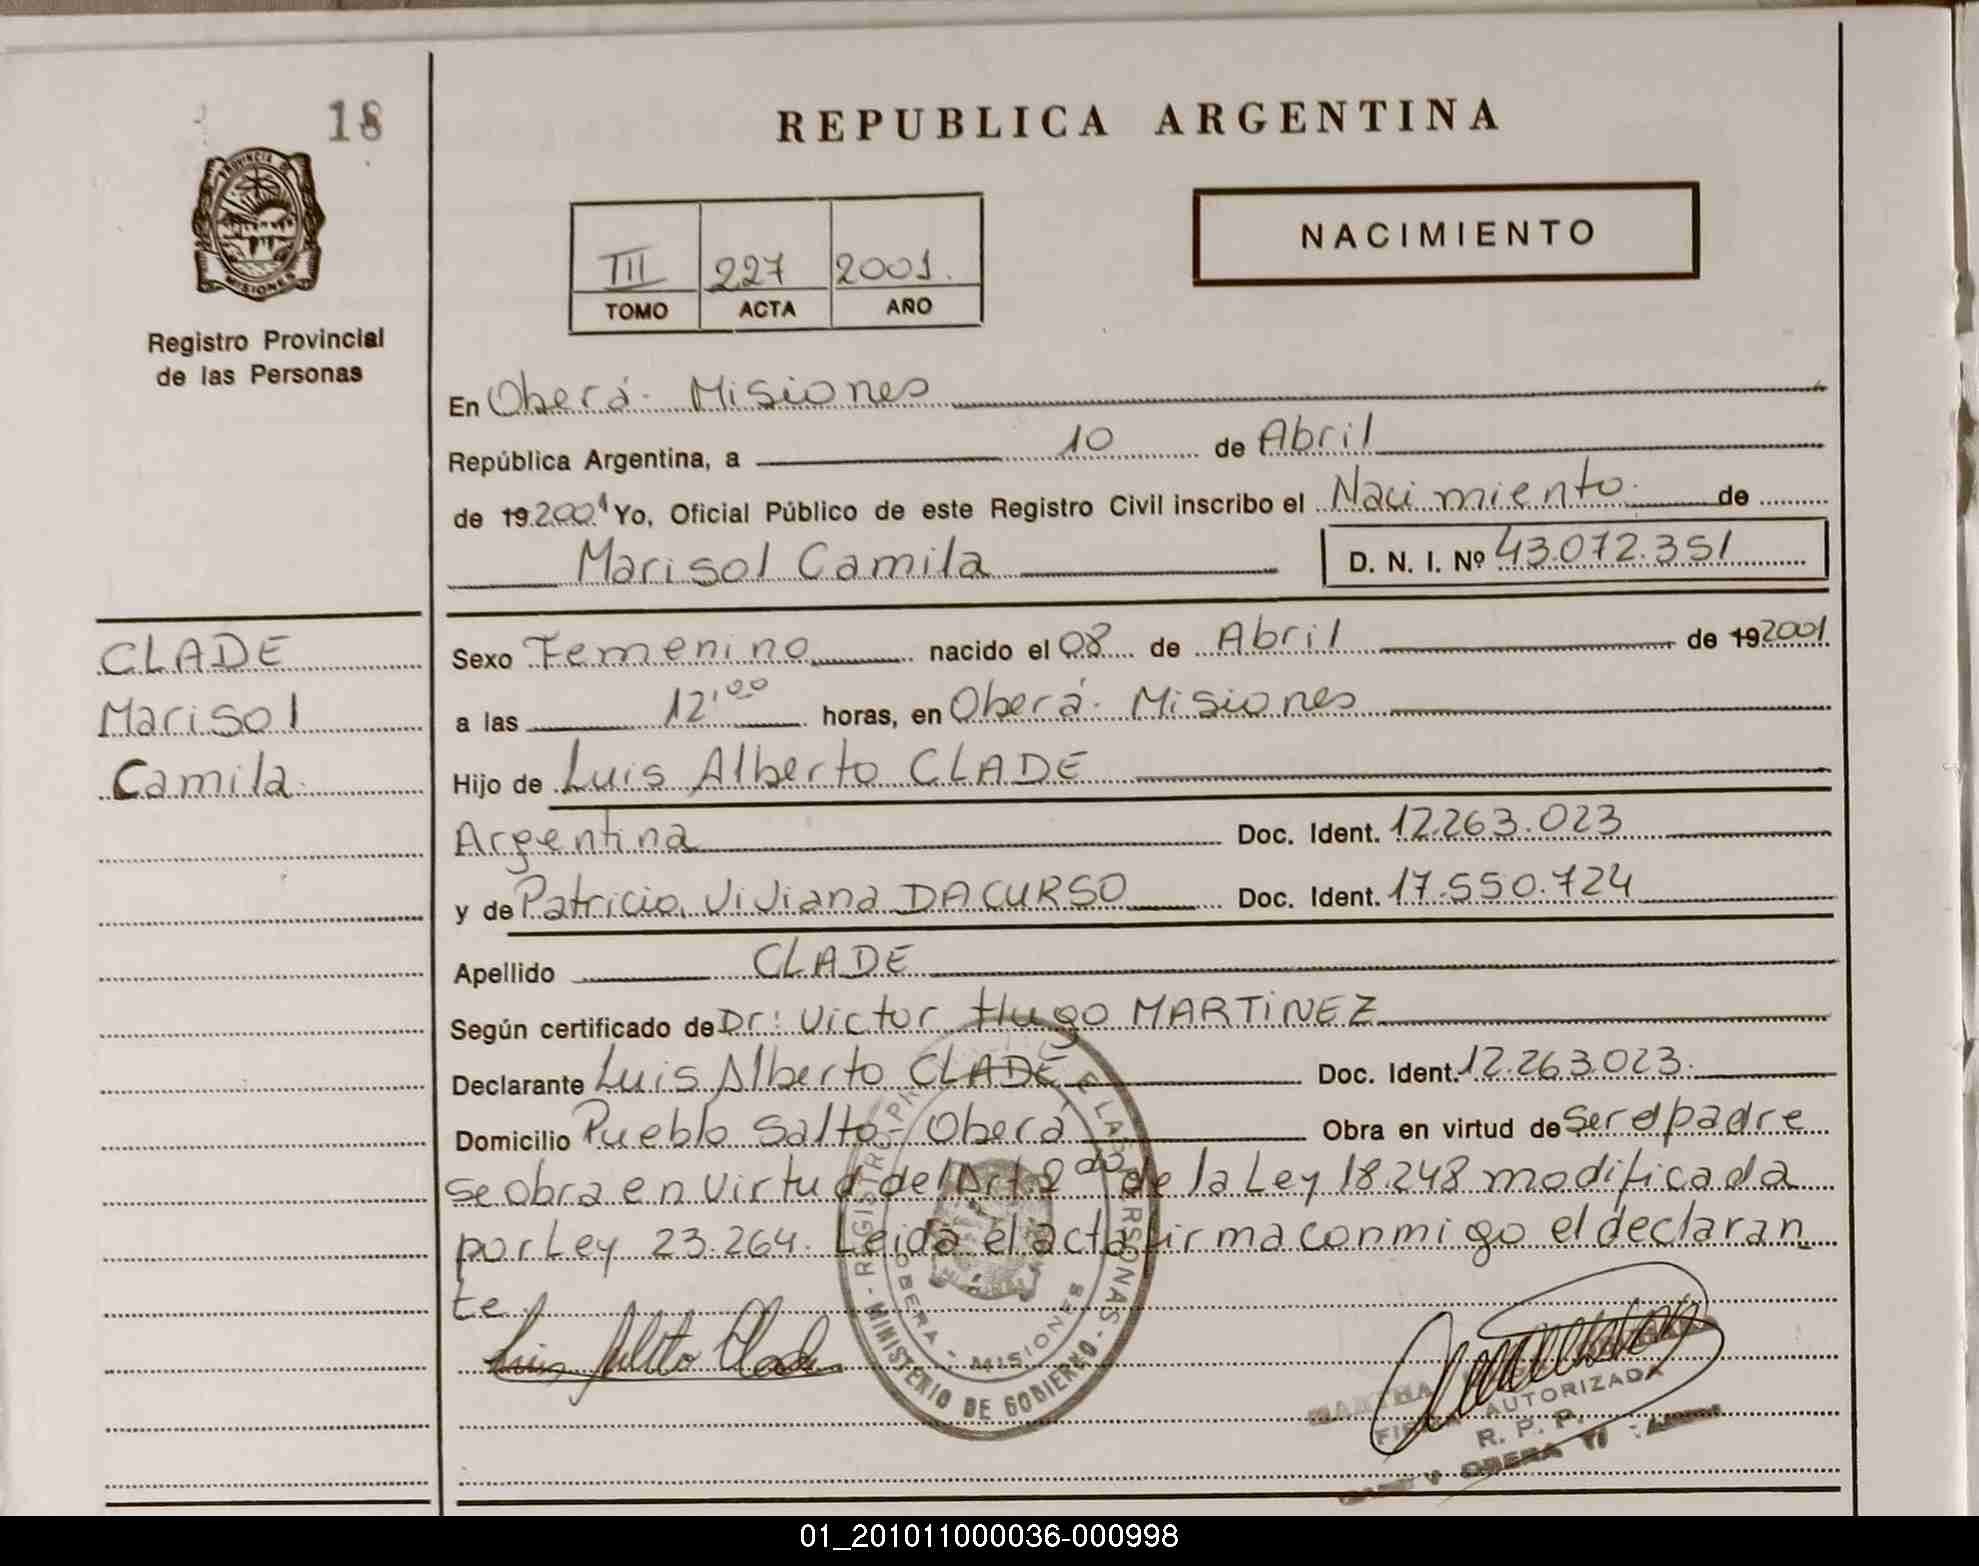 18
REPUBLICA ARGENTINA
PROVINCIA DE
MISIONES
Registro Provincial
de las Personas
III 227 2001.
TOMO ACTA AÑO
NACIMIENTO
En Oberá - Misiones
República Argentina, a 10 de Abril
de 19 2001 Yo, Oficial Público de este Registro Civil inscribo el Nacimiento de
Marisol Camila D. N. I. Nº 43.072.351
CLADE
Marisol
Camila
Sexo Femenino nacido el 08 de Abril de 19 2001
a las 12,00 horas, en Oberá - Misiones
Hijo de Luis Alberto CLADE
Argentina Doc. Ident. 12.263.023
y de Patricia Viviana DACURSO Doc. Ident. 17.550.724
Apellido CLADE
Según certificado de Dr: Victor Hugo MARTINEZ
Declarante Luis Alberto CLADE Doc. Ident. 12.263.023.
Domicilio Pueblo Salto - Oberá Obra en virtud de ser el padre
se obra en virtud del Art. 2do de la Ley 18.248 modificada
por Ley 23.264. Leida el acta firma conmigo el declaran
te.
Luis Alberto Clade
MINISTERIO DE GOBIERNO
OBERA - MISIONES
MARTHA
FIRMA AUTORIZADA
R. P. P.
OBERA
01_201011000036-000998